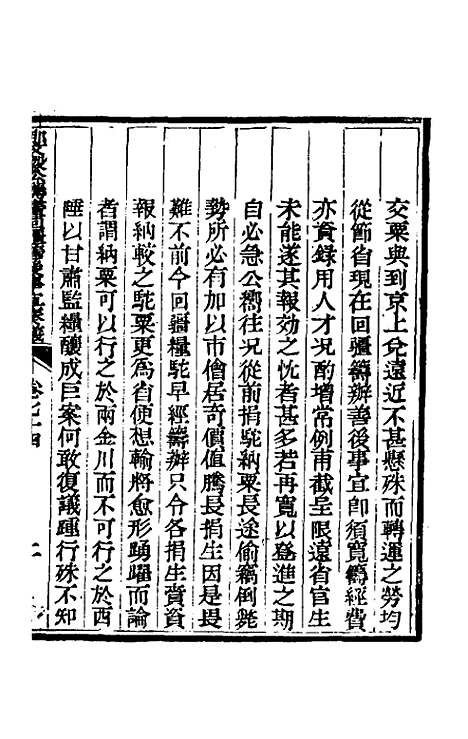 交粟與到京上兌遠近不甚懸殊而轉運之勞均
從節省現在回疆籌辦善後事宜卽須寬籌經費
亦資錄用人才况酌增常例甫截呈限遠省官生
未能遂其報効之忱者甚多若再寬以登進之期
自必急公嚮往况從前捐駝納粟長途偷竊倒斃
勢所必有加以市儈居奇價值騰長捐生因是畏
難不前今回疆糧駝早經籌辦只令各捐生賫資
報納較之駝粟更爲省便想輸將愈形踴躍而論
者謂納粟可以行之於兩金川而不可行之於西
陲以甘肅監糧釀成巨案何敢復議踵行殊不知
卷七十四
二